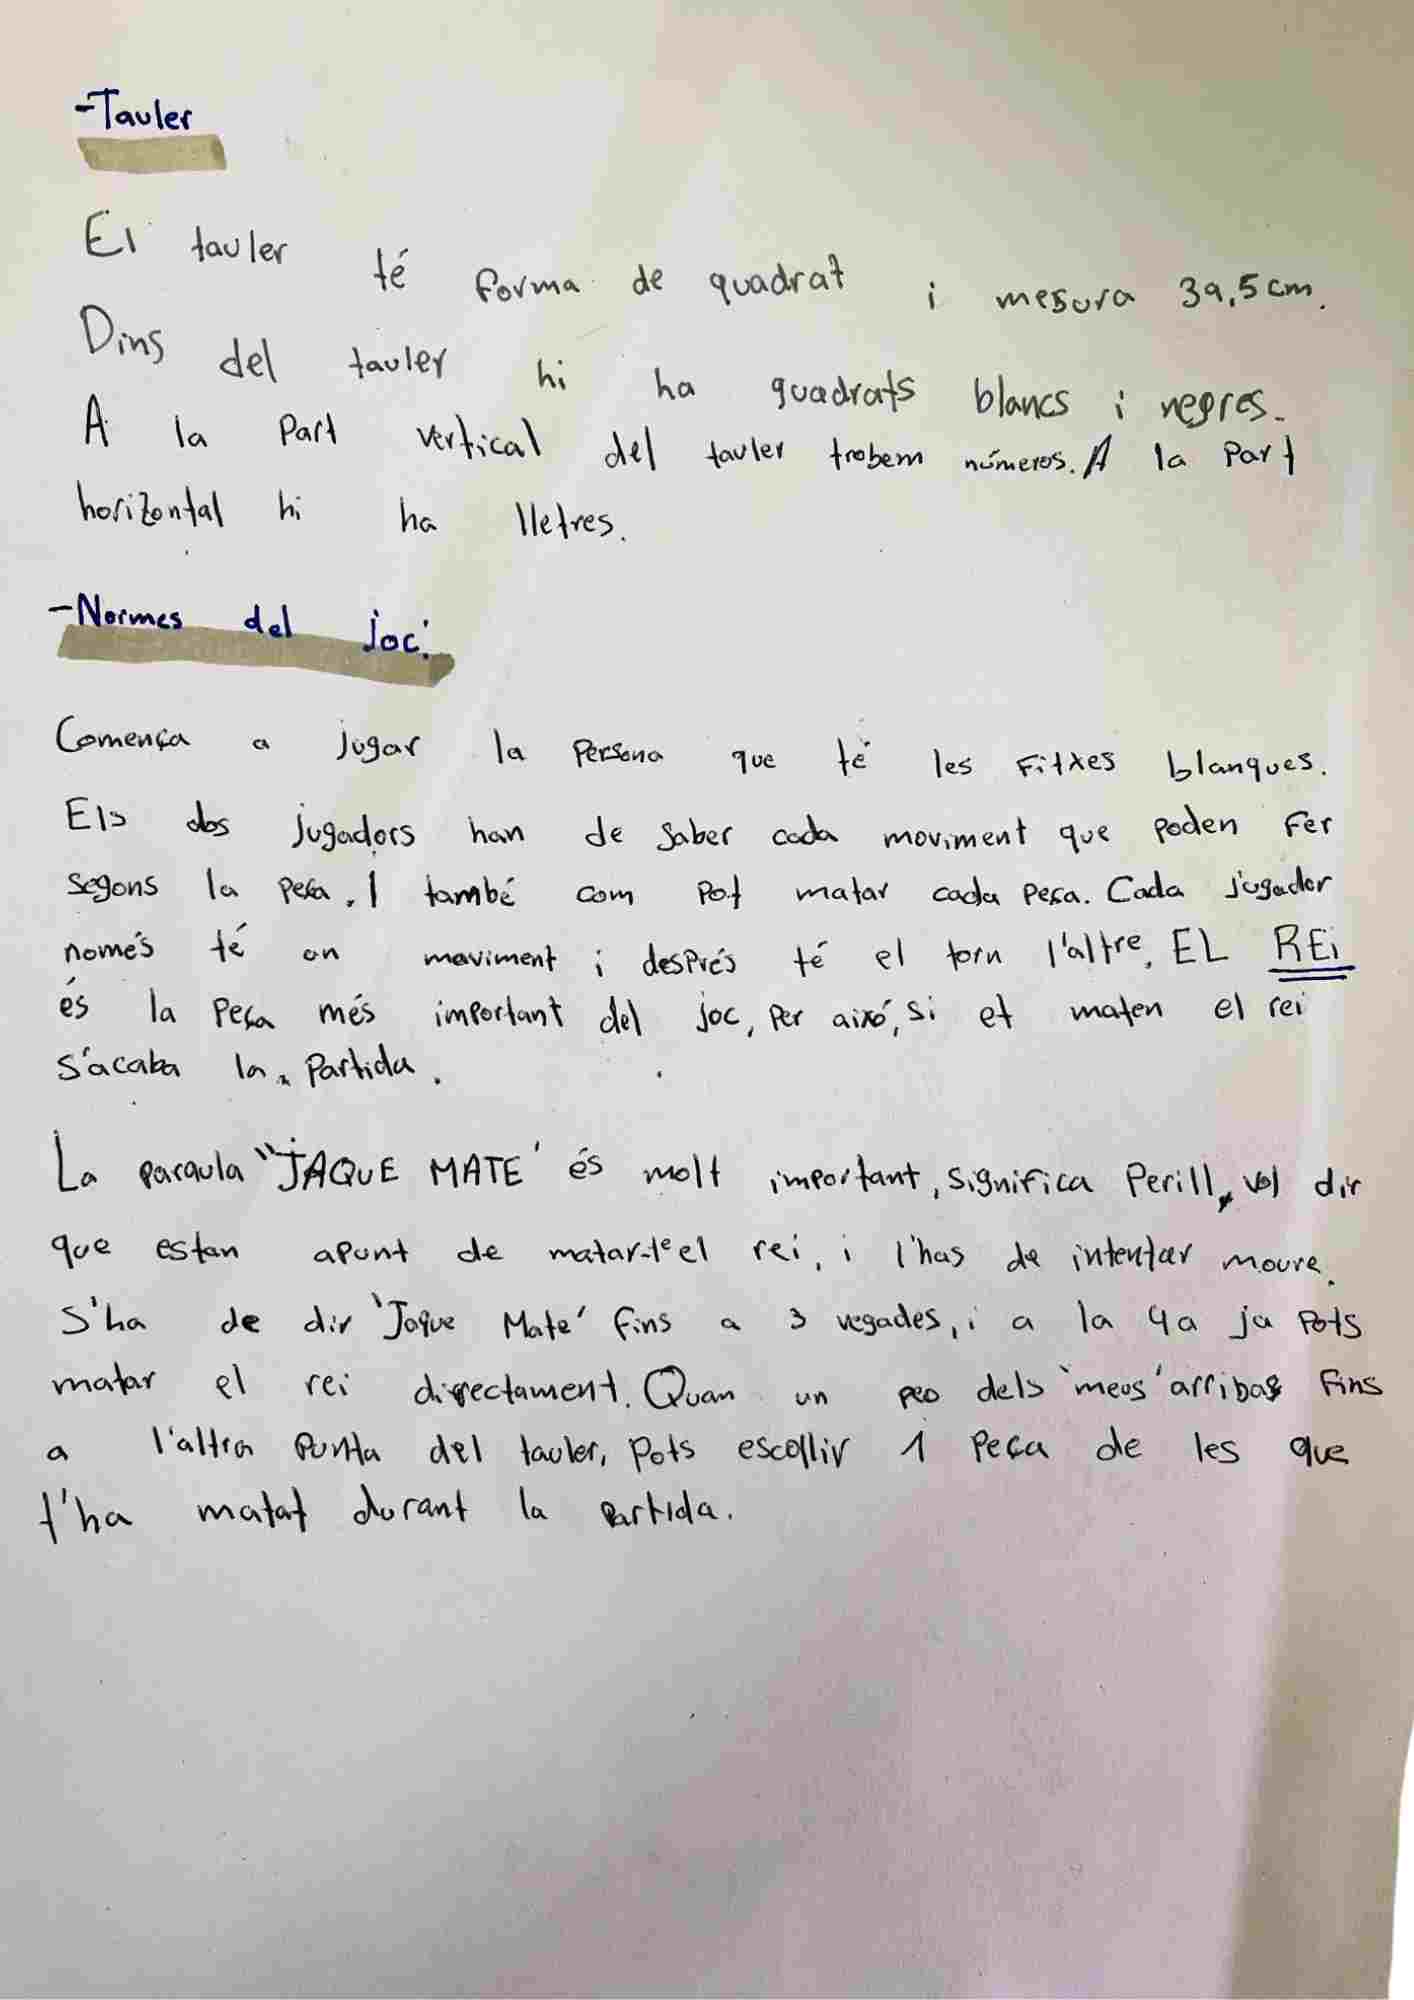 -Tauler
El tauler té forma de quadrat i mesura 39,5cm.
Dins del tauler hi ha quadrats blancs i negres.
A la part vertical del tauler trobem números. A la part
horitzontal hi ha lletres.
-Normes del joc:
Comença a jugar la persona que té les fitxes blanques.
Els dos jugadors han de saber cada moviment que poden fer
segons la peça. I també com pot matar cada peça. Cada jugador
només té on moviment i després té el torn l'altre. EL REi
és la peça més important del joc, per aixó, si et maten el rei
s'acaba la partida.
La paraula "JAQUE MATE' és molt important, significa Perill, vol dir
que estan apunt de matar-te el rei, i l'has de intentar moure.
S'ha de dir 'Jaque Mate' fins a 3 vegades, i a la 4a ja pots
matar el rei directament. Quan un peo dels 'meus' arribas fins
a l'altra punta del tauler, pots escollir 1 peça de les que
t'ha matat durant la partida.